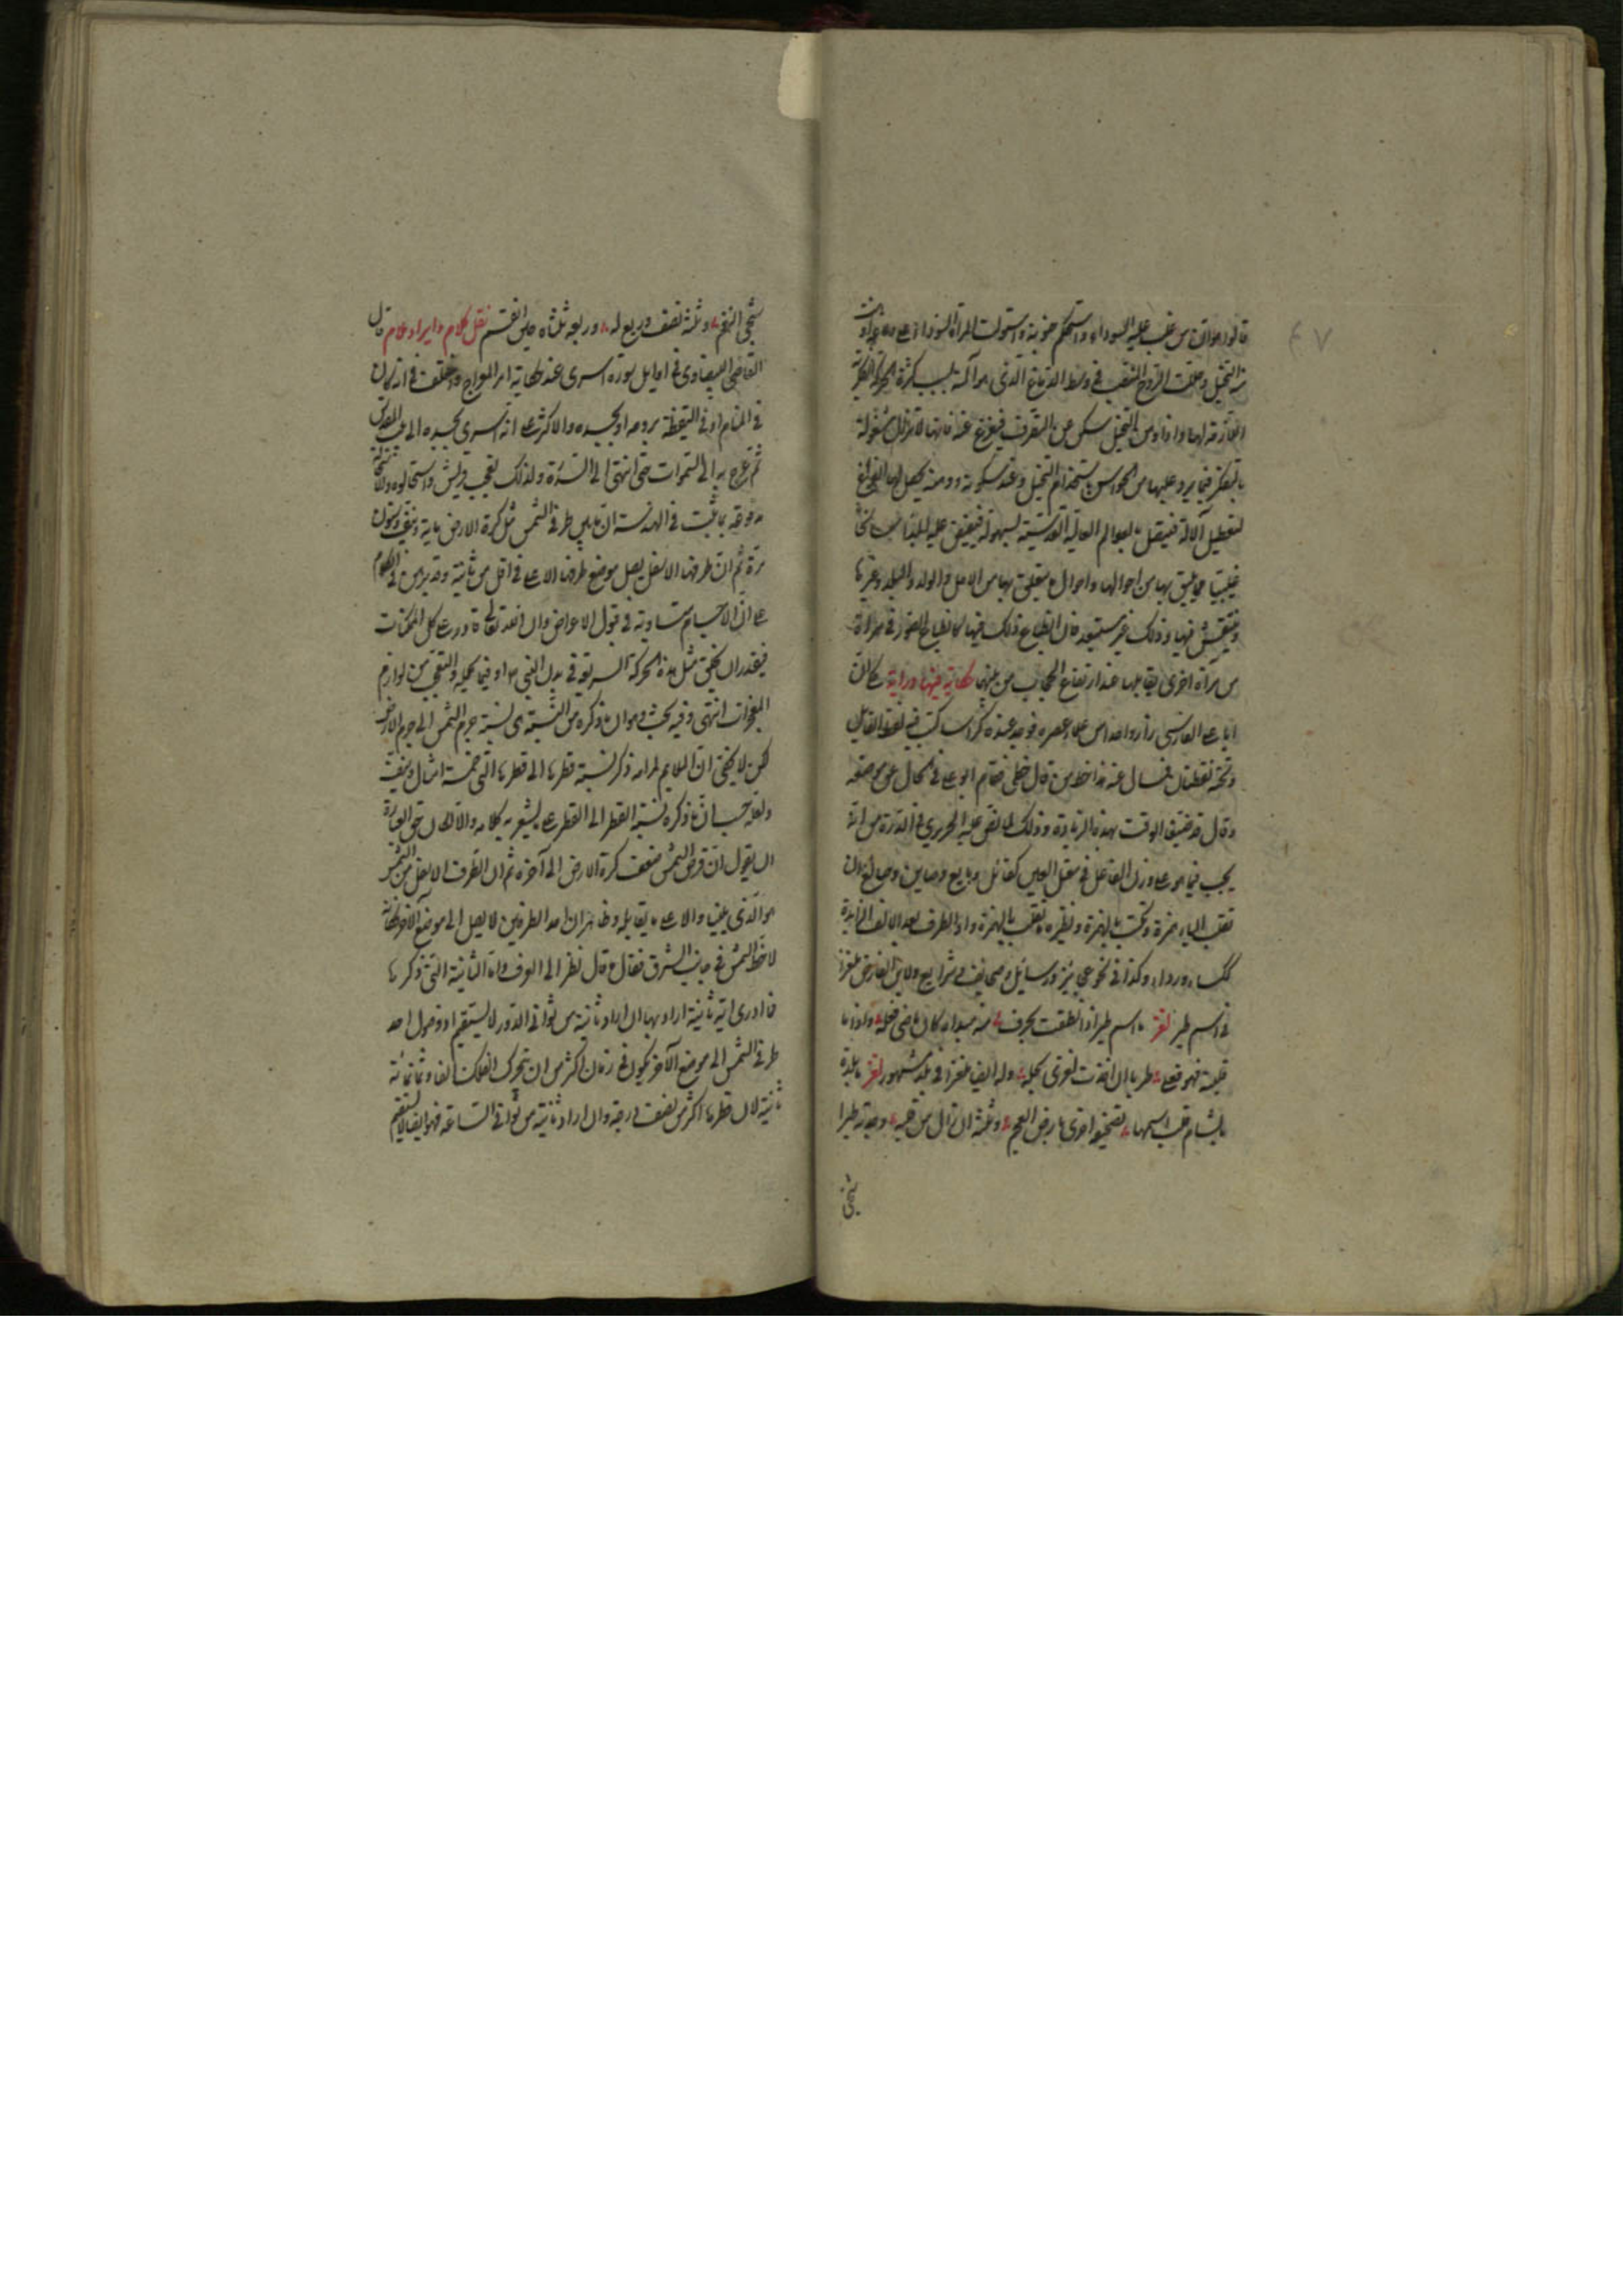 ٤٧
قالوا هو ان من غلب عليه السوداء واستحكم جنونه واستولت المرة السوداء على
منه التخيل وحلت الروح المنصب في وسط الدماغ الذي هو آلته بسبب كثرة الحركة الفكرية
اللازمة لها واذا وهن التخيل سكن عن التصرف فيفرغ عنه فانها لا تزال مشغولة
بالتفكر فيما يرد عليها من الحواس باستخدام التخيل وعند سكونه ووهنه يحصل لها الفراغ
لتعطيل آلاته فيتصل بالعوالم العالية القدسية بسهولة فيفيض عليه
غيبيا مما يليق بها من احوالها واحوال ما يتعلق بها من الاهل والولد والبلد وغيرها
وينتقش فيها وذلك غير مستبعد فان انطباع ذلك فيها كانطباع الصور في مرآة
من مرآة اخرى يقابلها عند ارتفاع الحجاب من بينهما حكاية فيها دراية حكي ان
ابا علي الفارسي زار واحدا من علماء عصره فوجد عنده كراسا كتب فيه لفظ القايل
وتحته نقطتان فسال عنه هذا خط من قال خطي فقام ابو علي في الحال عن موضعه
وقال قد ضيق الوقت بهذه الزيارة وذلك لما نص عليه الحريري في الدرة من انه
يجب فيما هو على وزن الفاعل في معتل العين كقائل وبايع وصاين وصائغ ان
تقلب الياء همزة وتكتب بالهمزة ونظيره تقلب بالهمزة واذا لطرف بعد الالف الزايدة
ككساء ورداء وكذا في نحو عجايز ورسايل وصحايف وشرايع ولابن الفارض ملغزا
في اسم طير لغز ما اسم طير اذا نطقت بحرف منه مبداه كان ماضي فعله واذا ما
قلبته فهو فعلي طربا ان اخذت لغزي بحله وله ايضا ملغزا في بلد مشهور لغز ما بلدة
بالشام قلب اسمها تصحيفه اخرى بارض العجم وثلثه ان زال من قلبه وجدته طيرا
شجي
شجي النغم وثلثه نصف وربع له وربعه ثلثاه حين انقسم نقل كلام وايراد وملام قال
القاضي البيضاوي في اوايل سورة اسرى عند حكاية امر المعراج واختلف في انه كان
في المنام او في اليقظة بروحه او بجسده والاكثر على انه اسري بجسده الى بيت المقدس
ثم عرج به الى السموات حتى انتهى الى السدرة ولذلك تعجب قريش واستحالوه والاستحالة
مدفوعة بما ثبت في الهندسة ان ما بين طرفي الشمس مثل كرة الارض ماية ونيف وستون
مرة ثم ان طرفها الاسفل يصل موضع طرفها الاعلى في اقل من ثانية وقد برهن في الكلام
على ان الاجسام متساوية في قبول الاعراض وان الله تعالى قادر على كل الممكنات
فيقدر ان يخلق مثل هذه الحركة السريعة في بدن النبي ص او فيما يحمله والتعجب من لوازم
المعجزات انتهى وفيه بحث وهو ان ما ذكره من النسبة هي نسبة جرم الشمس الى جرم الارض
لكن لا يخفى ان اللايم لمرامه ذكر نسبة قطرها الى قطرها التي خمسة امثال ونصف
ولعله حسب ان ما ذكره نسبة القطر الى القطر على ما يشعر به كلامه والا كان حق العبارة
ان يقول ان قرص الشمس ضعف كرة الارض الى آخره ثم ان الطرف الاسفل من الشمس
هو الذي يلينا والاعلى ما يقابله وظاهر ان احد الطرفين لا يصل الى موضع الآخر
لاحظ الشمس في جانب الشرق فقال ما قال نظر الى الوف واما الثانية التي ذكرها
فما ادري اية ثانية اراد بها ان اراد ثانية من ثواني الدور لا يستقيم اذ وصول احد
طرفي الشمس الى موضع الآخر يكون في زمان اكثر من ان تحرك الفلك الفا وثمانمائة
ثانية لان قطرها اكثر من نصف درجة وان اراد ثانية من ثواني الساعة فهو ايضا لا يستقيم